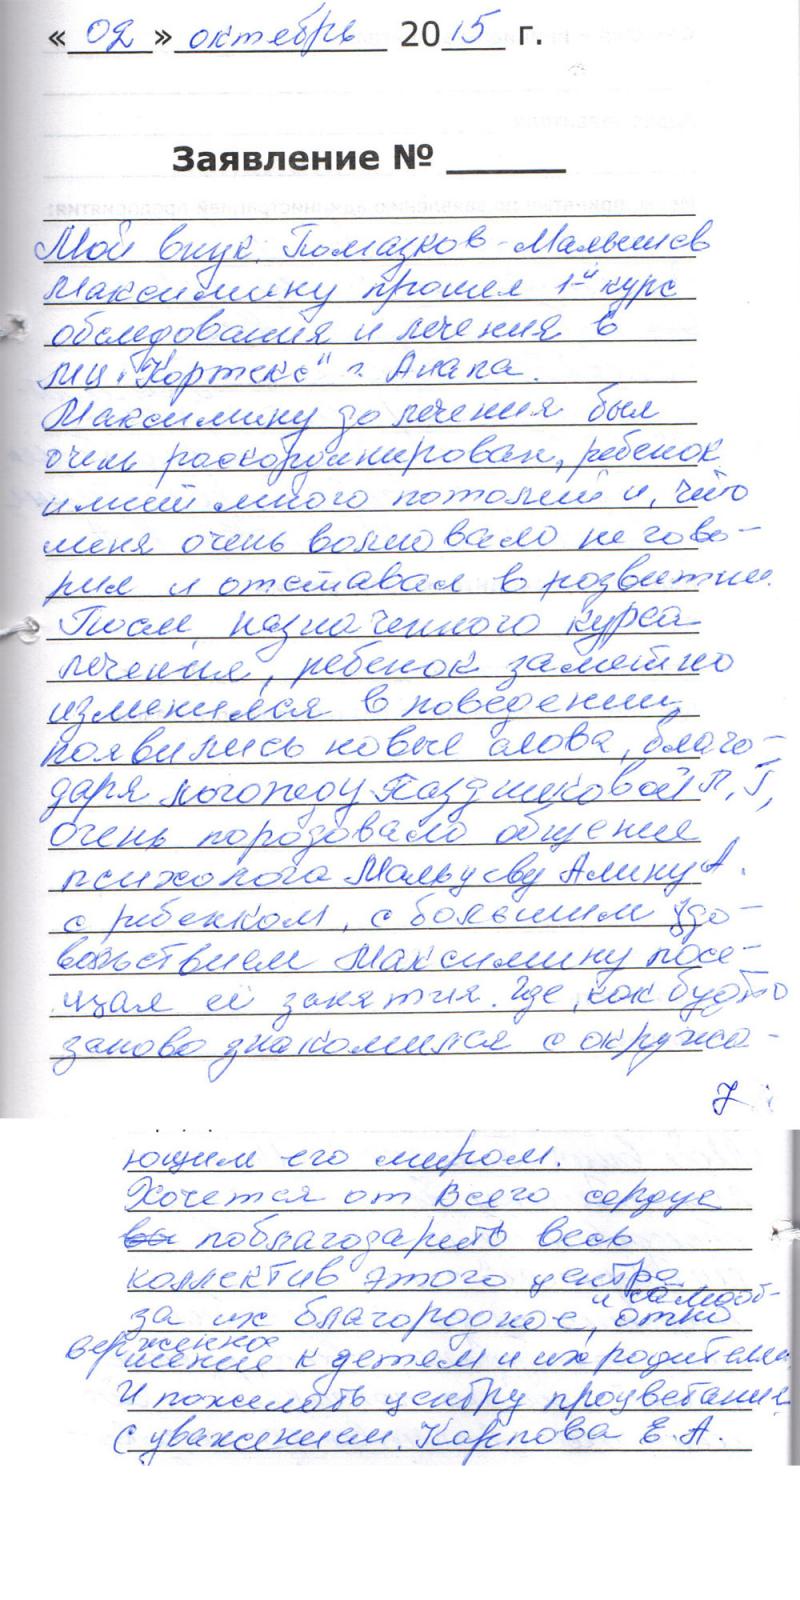 « 02 » октябрь 2015 г.
Заявление № ______
Мой внук, Помазков-Малышев
Максимину прошел 1-й курс
обследования и лечения в
МЦ "Кортекс" г. Анапа.
Максимину до лечения был
очень раскординирован, ребенок
имеет много потолий и, что
меня очень волновало не гово-
рил и отставал в развитии.
После назначенного курса
лечения, ребенок заметно
изменился в поведении,
появились новые слова, благо-
даря логопеду Паздниковой П. Г,
Очень порадовало общение
психолога Мальцеву Алину А.
с ребенком, с большим удо-
вольствием Максимину посе-
щал её занятия. Где, как будто
заново знакомился с окружа-
7
ющим его миром.
Хочется от всего сердце
поблагодарить весь
коллектив этого центра
за их благородное, и самоот-
верженное отно
шение к детям и их родителям
И пожелать центру процветание
С уважением. Карпова Е. А.